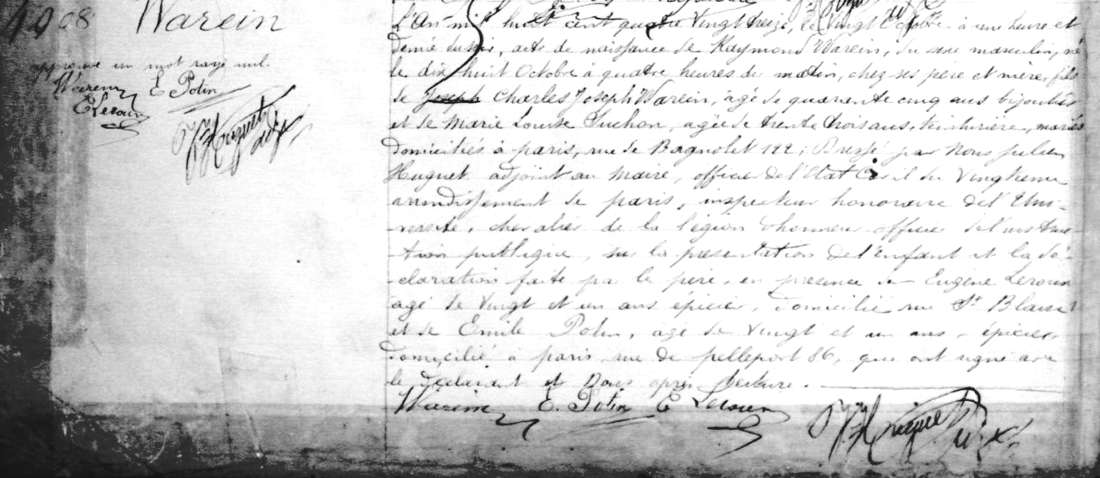 1908 Warein
approuvé un mot rayé nul.
Warein E. Potin
E Leroux
J. Huguet adjt
L'An mil huit cent quatre vingt treize, le vingt Octobre à une heure et
demie du soir, acte de naissance de Raymond Warein, du sexe masculin, né
le dix huit Octobre à quatre heures du matin, chez ses père et mère, fils
de Joseph Charles Joseph Warein, âgé de quarante cinq ans bijoutier
et de Marie Louise Suchon, agée de trente trois ans, teinturière, mariés
domiciliés à paris, rue de Bagnolet 122; Dressé par Nous Julien
Huguet adjoint au Maire, officier de l'Etat Civil du Vingtième
arrondissement de paris, inspecteur honoraire de l'Uni-
versité, chevalier de la légion d'honneur officier d'instruc-
-tion publique, sur la présentation de l'Enfant et la dé-
-claration faite par le père, en présence de Eugène Leroux
agé de vingt et un ans épicier, domicilié rue St Blaise
et de Emile Potin, agé de vingt et un ans, épicier
domicilié à paris, rue de pelleport 86, qui ont signé avec
le déclarant et Nous après lecture.
Warein E. Potin E Leroux J. Huguet adjt